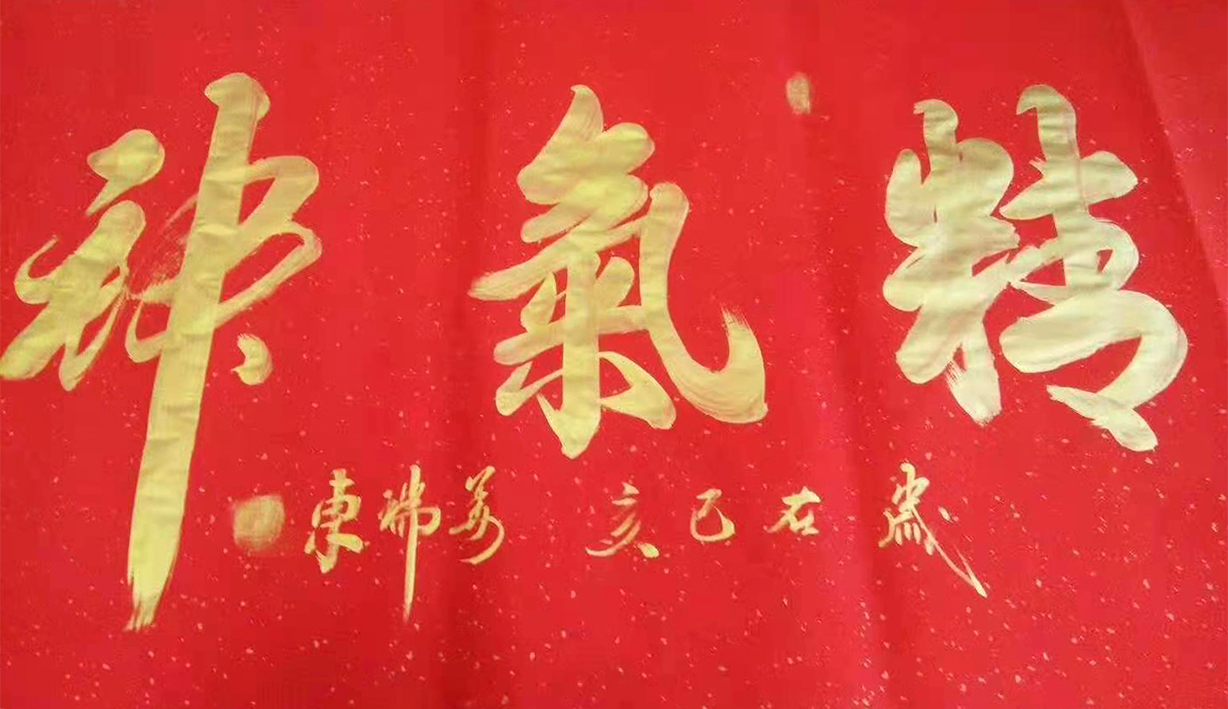 精氣神
歲在己亥 姜瑞東